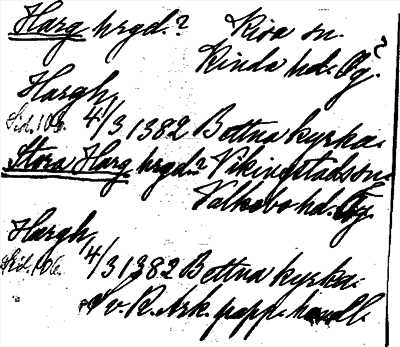 Harg hrgd.? Kisa sn.
Kinda hd. Ög.?
Hargh
Sid. 106. 4/3 1382 Bottna kyrka.
Stora Harg hrgd.? Vikingstads sn.
Valkebo hd. Ög.
Hargh
Sid. 106. 4/3 1382 Bottna kyrka.
Sv. R. Ark. papp. handl.